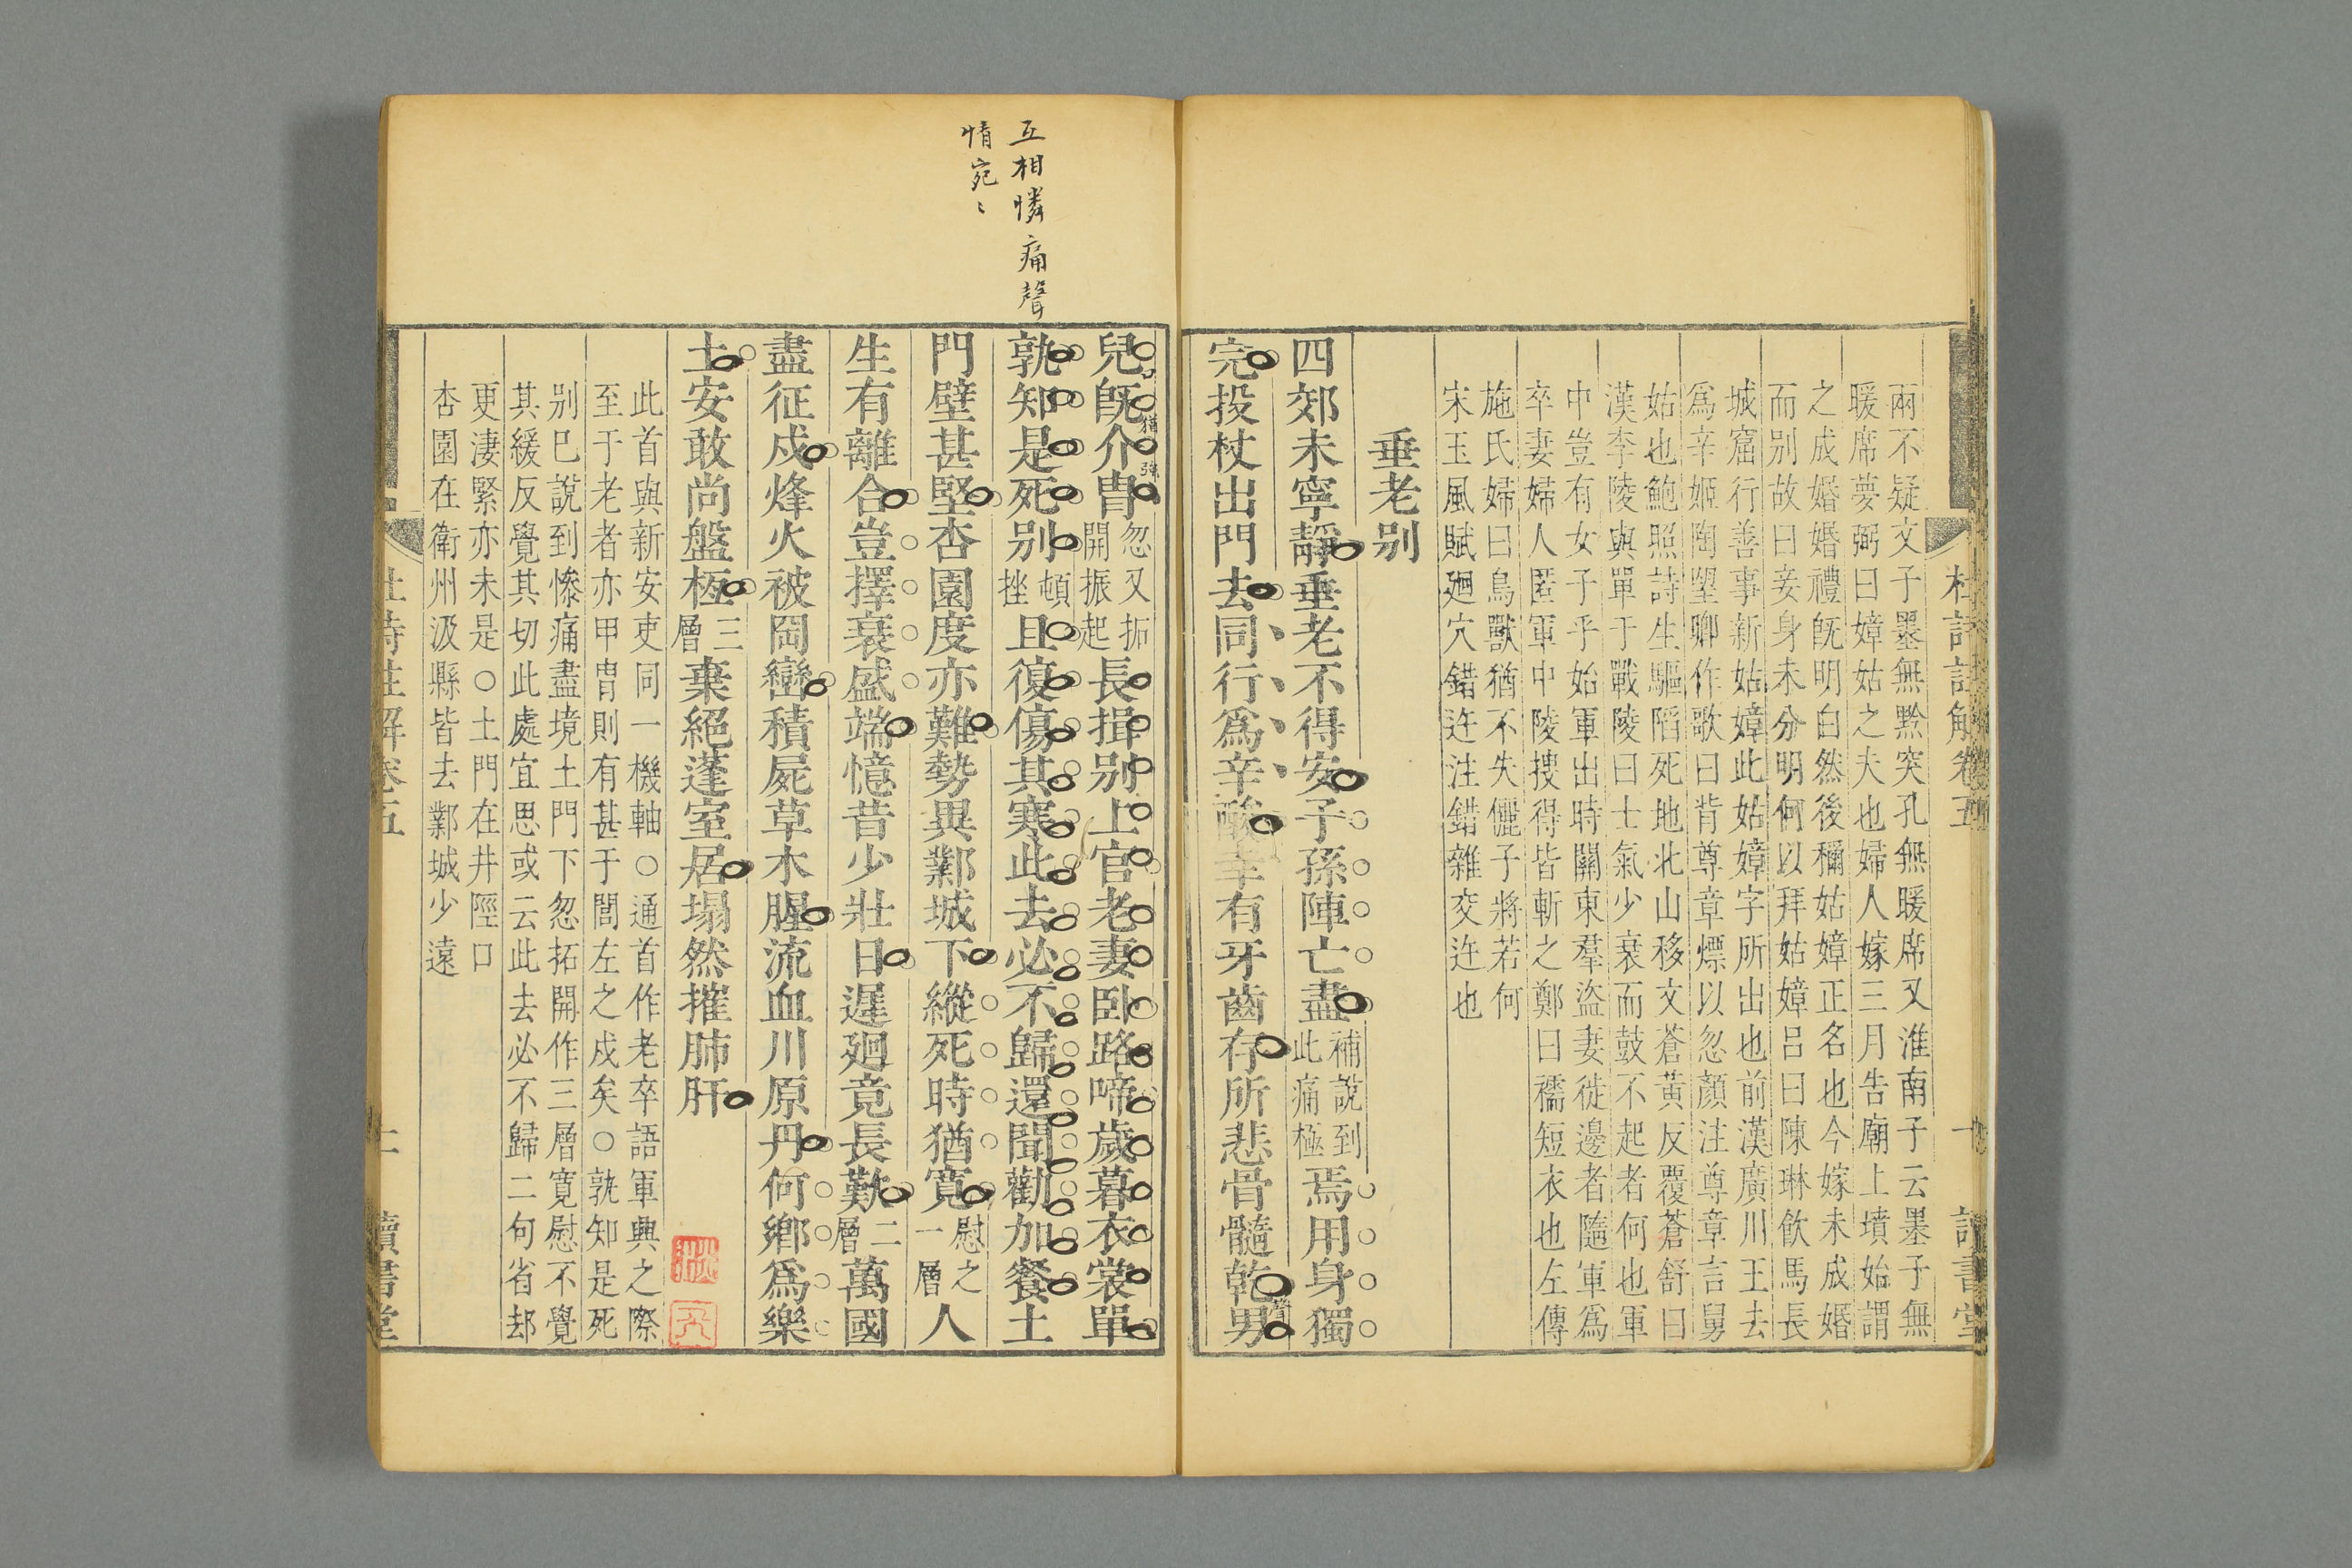 兩不疑文子墨無黔突孔無暖席又淮南子云墨子無
暖席夢弼曰嫜姑之夫也婦人嫁三月告廟上墳始謂
之成婚婚禮既明白然後稱姑嫜正名也今嫁未成婚
而别故曰妾身未分明何以拜姑嫜呂曰陳琳飲馬長
城窟行善事新姑嫜此姑嫜字所出也前漢廣川王去
爲辛姬陶望卿作歌曰背尊章嫖以忽顏注尊章言舅
姑也鮑照詩生驅陷死地北山移文蒼黃反覆蒼舒曰
漢李陵與單于戰陵曰士氣少衰而鼓不起者何也軍
中豈有女子乎始軍出時關東羣盜妻徙邊者隨軍爲
卒妻婦人匿軍中陵搜得皆斬之鄭曰襦短衣也左傳
施氏婦曰鳥獸猶不失儷子將若何
宋玉風賦廻穴錯迕注錯雜交迕也
垂老别
四郊未寧靜垂老不得安子孫陣亡盡
補說到
此痛極
焉用身獨
完投杖出門去同行爲辛酸幸有牙齒存所悲骨髓乾男
兒既介冑
忽又拓
開振起
長揖别上官老妻臥路啼歲暮衣裳單
孰知是死别
頓
挫
且復傷其寒此去必不歸還聞勸加餐土
門壁甚堅杏園度亦難勢異鄴城下縱死時猶寬
慰之
一層
人
生有離合豈擇衰盛端憶昔少壯日遲廻竟長歎
二
層
萬國
盡征戍烽火被岡巒積屍草木腥流血川原丹何鄉爲樂
土安敢尚盤桓
三
層
棄絕蓬室居塌然摧肺肝
此首與新安吏同一機軸○通首作老卒語軍興之際
至于老者亦甲冑則有甚于閭左之戍矣○孰知是死
别巳說到慘痛盡境土門下忽拓開作三層寬慰不覺
其緩反覺其切此處宜思或云此去必不歸二句省却
更淒緊亦未是○土門在井陘口
杏園在衛州汲縣皆去鄴城少遠
互相憐痛聲
情宛〻
杜詩註解卷五
讀書堂